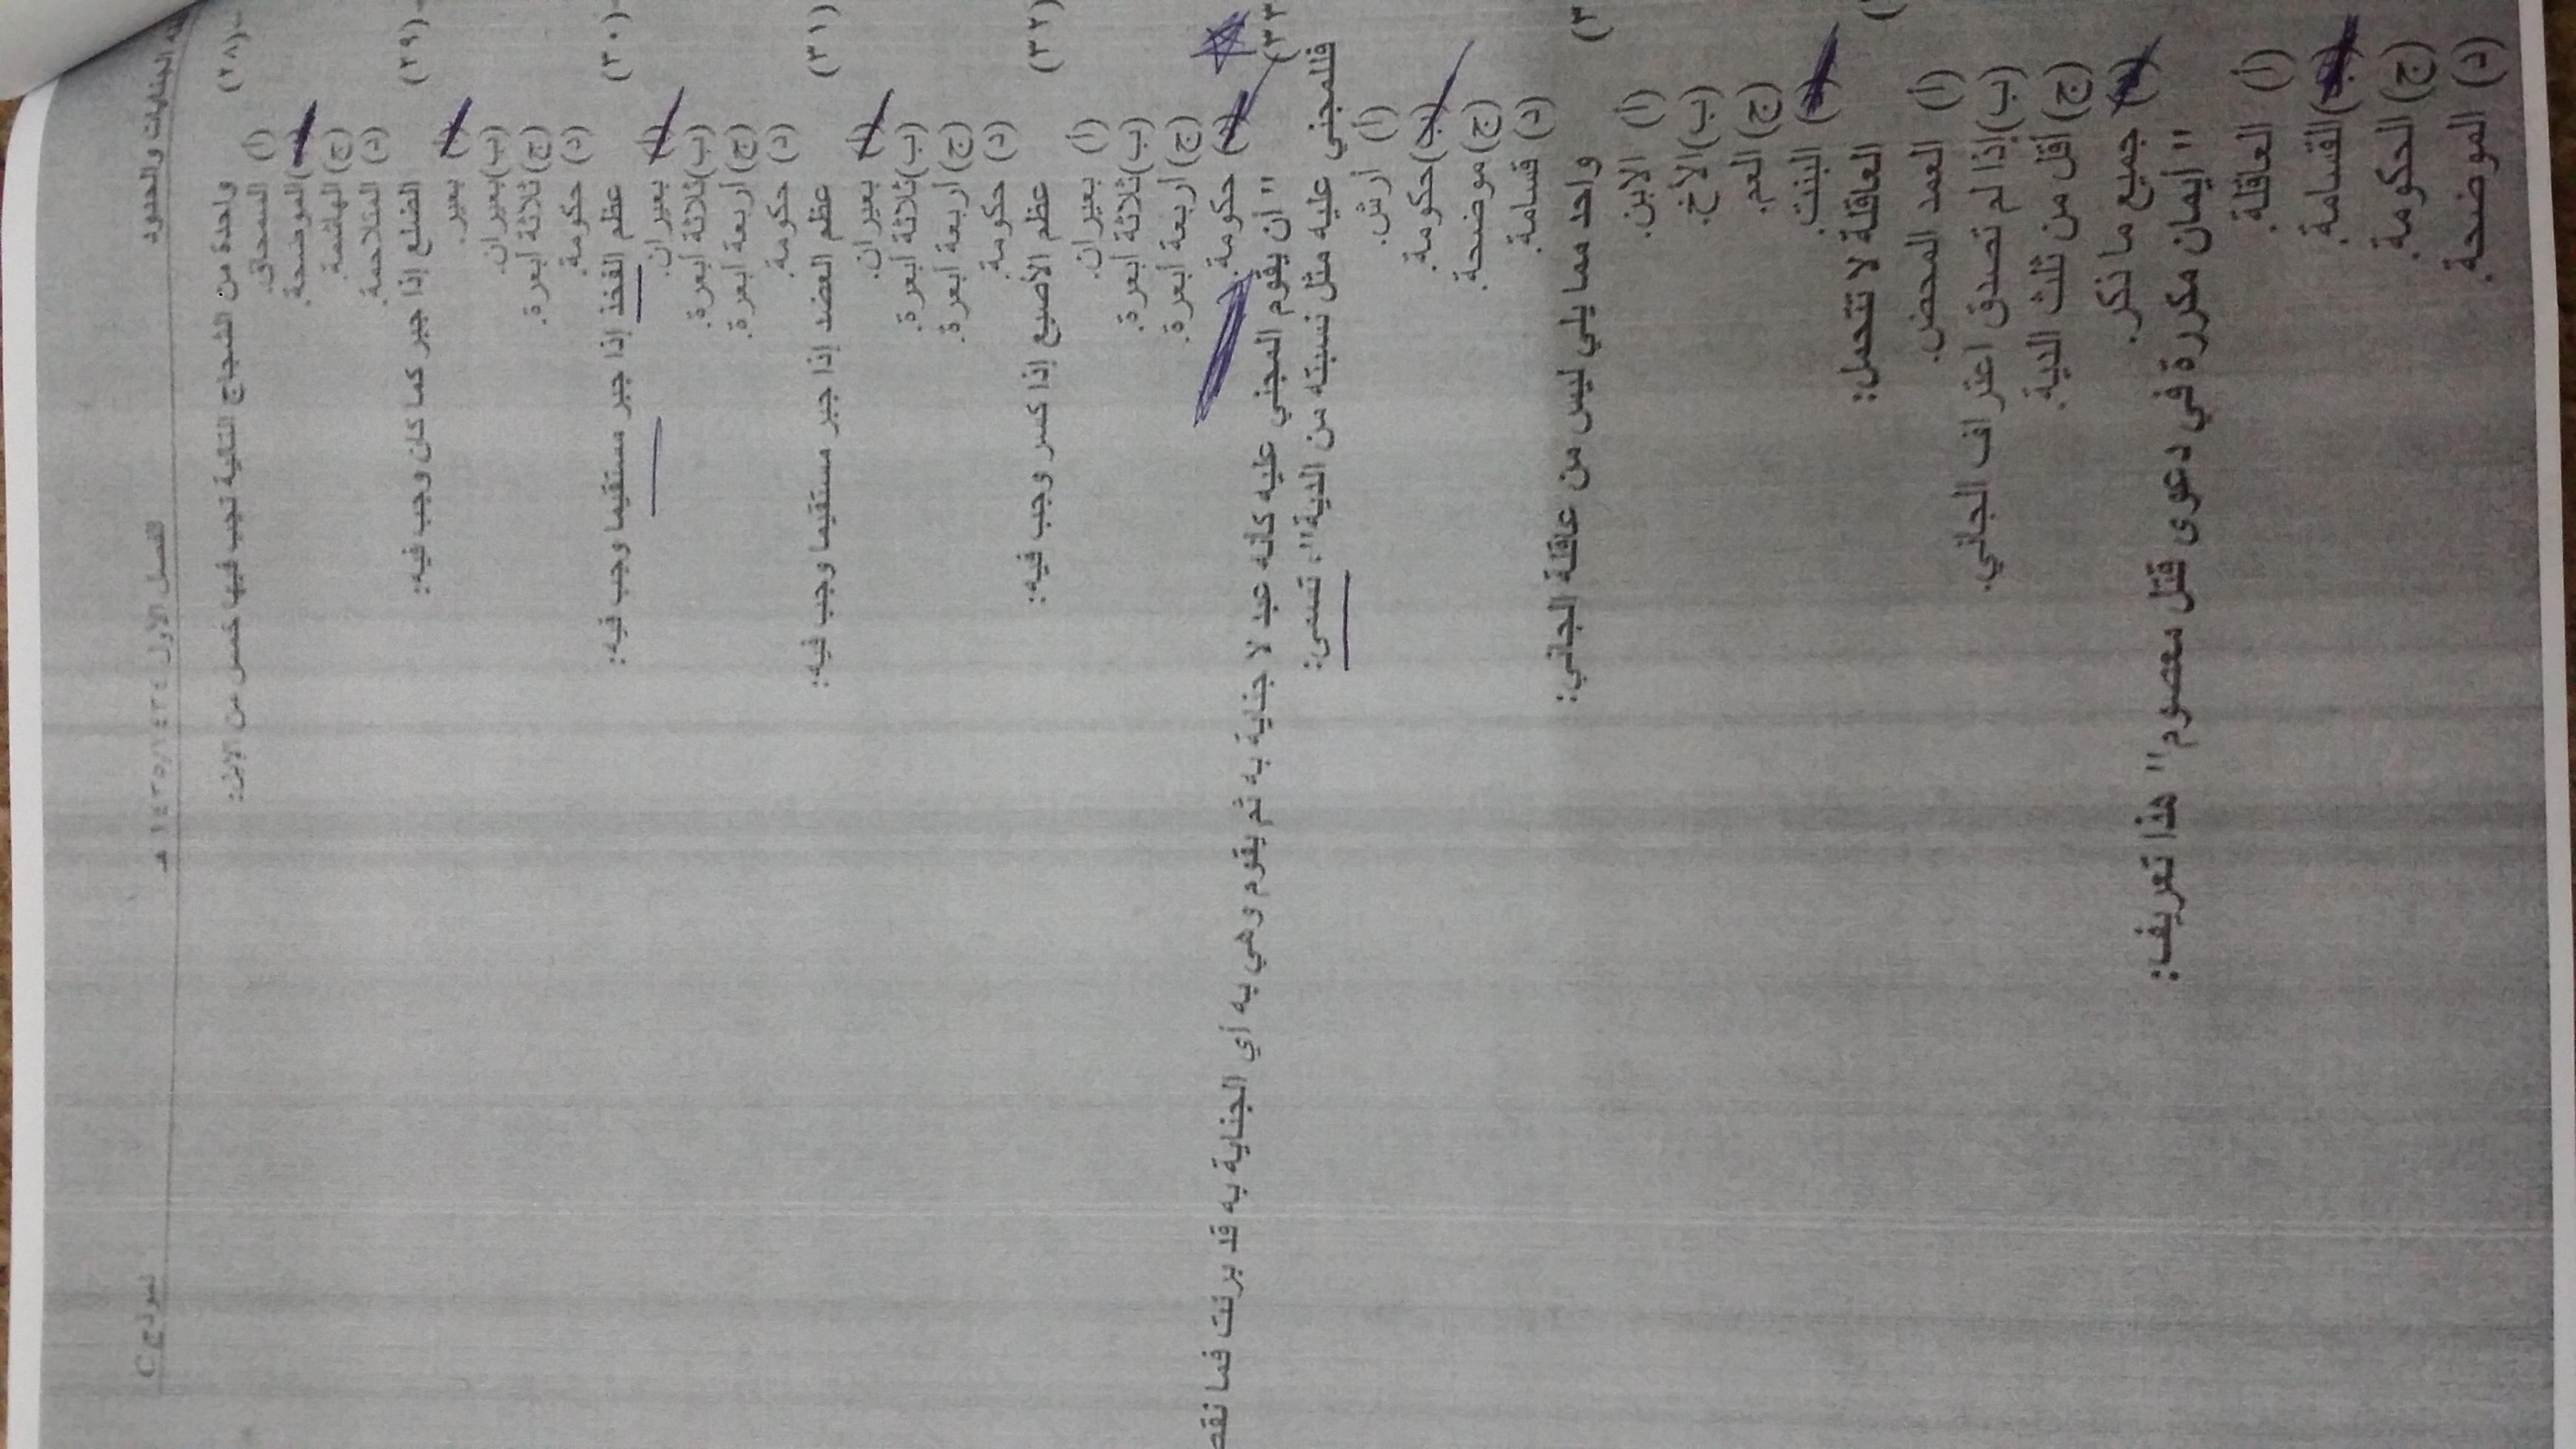 فقه الجنايات والحدود الفصل الأول ١٤٣٥/١٤٣٤ هـ نموذج C
(٢٨)- واحدة من الشجاج التالية تجب فيها خمس من الإبل:
(أ) السمحاق.
الموضحة.
(ج) الهاشمة.
(د) المتلاحمة.
(٢٩)- الضلع إذا جبر كما كان وجب فيه:
بعير.
(ب) بعيران.
(ج) ثلاثة أبعرة.
(د) حكومة.
(٣٠)- عظم الفخذ إذا جبر مستقيما وجب فيه:
بعيران.
(ب) ثلاثة أبعرة.
(ج) أربعة أبعرة.
(د) حكومة.
(٣١) عظم العضد إذا جبر مستقيما وجب فيه:
بعيران.
(ب) ثلاثة أبعرة.
(ج) أربعة أبعرة.
(د) حكومة.
(٣٢) عظم الأصبع إذا كسر وجب فيه:
(أ) بعيران.
(ب) ثلاثة أبعرة.
(ج) أربعة أبعرة.
حكومة.
(٣٣ "أن يقوم المجني عليه كأنه عبد لا جناية به ثم يقوم وهي به أي الجناية به قد برئت فما نقص
فللمجني عليه مثل نسبته من الدية"، تسمى:
(أ) أرش.
(ب) حكومة.
(ج) موضحة.
(د) قسامة.
واحد مما يلي ليس من عاقلة الجاني:
(أ) الابن.
(ب) الأخ.
(ج) العم.
البنت.
العاقلة لا تتحمل:
(أ) العمد المحض.
(ب) إذا لم تصدق اعتراف الجاني.
(ج) أقل من ثلث الدية.
جميع ما ذكر.
"أيمان مكررة في دعوى قتل معصوم" هذا تعريف:
(أ) العاقلة.
القسامة.
(ج) الحكومة.
(د) الموضحة.